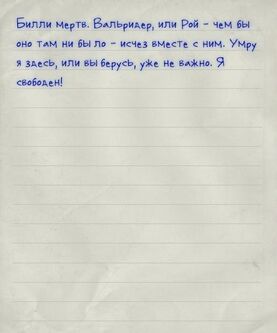 Билли мертв. Вальридер, или Рой - чем бы
оно там ни было - исчез вместе с ним. Умру
я здесь, или выберусь, уже не важно. Я
свободен!